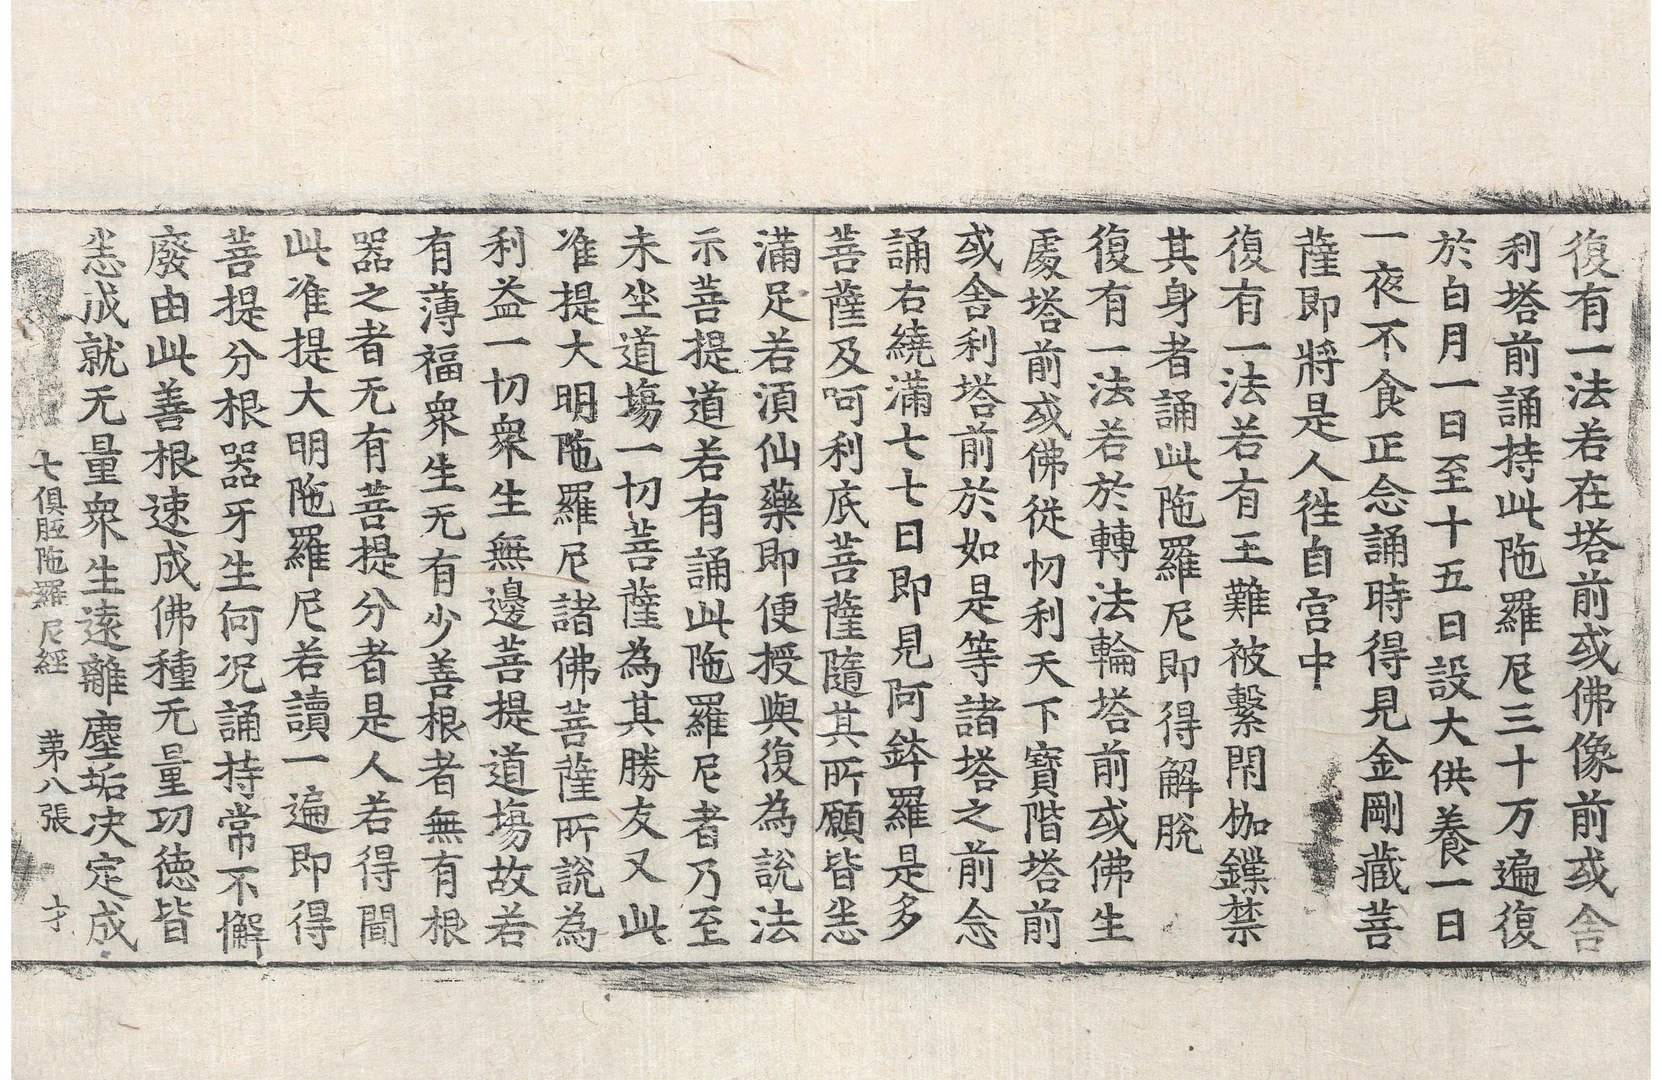 復有一法若在塔前或佛像前或舍
利塔前誦持此陁羅尼三十万遍復
於白月一日至十五日設大供養一日
一夜不食正念誦時得見金剛藏菩
薩即將是人徃自宮中
復有一法若有王難被繫閇枷鏁禁
其身者誦此陁羅尼即得解脫
復有一法若於轉法輪塔前或佛生
處塔前或佛從忉利天下寶階塔前
或舍利塔前於如是等諸塔之前念
誦右繞滿七七日即見阿鉢羅是多
菩薩及呵利底菩薩隨其所願皆悉
滿足若湏仙藥即便授與復為說法
示菩提道若有誦此陁羅尼者乃至
未坐道塲一切菩薩為其勝友又此
准提大明陁羅尼諸佛菩薩所說為
利益一切衆生無邊菩提道塲故若
有薄福衆生无有少善根者無有根
器之者无有菩提分者是人若得聞
此准提大明陁羅尼若讀一遍即得
菩提分根器牙生何况誦持常不懈
廢由此善根速成佛種无量功徳皆
悉成就无量衆生遠離塵垢决定成
七俱胝陁羅尼經 苐八張 才